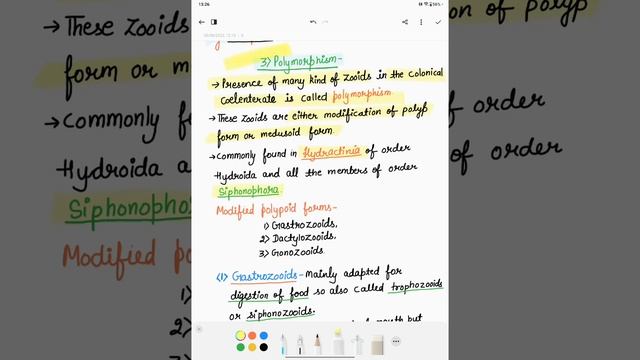 13:26
3) Polymorphism-
→ Presence of many kind of zooids in the colonical
coelenterate is called polymorphism.
→ These zooids are either modification of polyp
form or medusoid form.
→ Commonly found in Hydractinia of order
Hydroida and all the members of order
Siphonophora.
Modified polypoid forms-
1) Gastrozooids,
2) Dactylozooids,
3) Gonozooids.
(1) Gastrozooids - Mainly adapted for
digestion of food so also called trophozooids
or siphonozooids.
mouth but
→ These zooids
form or m
→ Commonly f
Hydroida and
Siphonopho
Modified po
1)
2)
on of polyp
order
of order